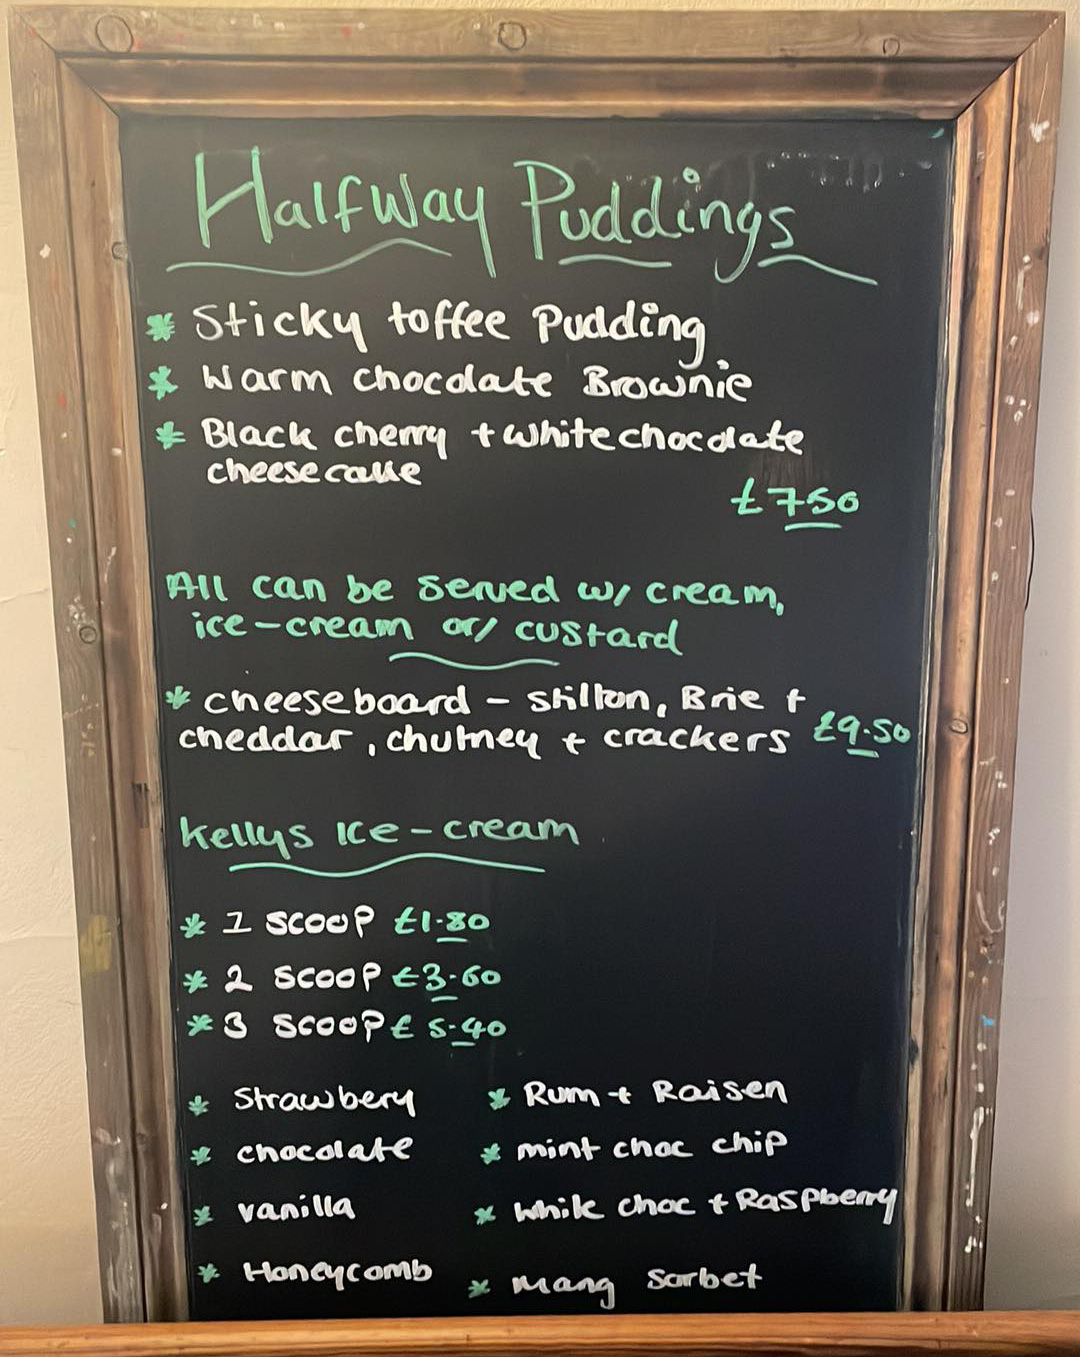 Halfway Puddings
* Sticky toffee Pudding
* Warm chocolate Brownie
* Black cherry + white chocolate
cheesecake
£7.50
All can be served w/ cream,
ice-cream or/ custard
* cheeseboard - stilton, Brie +
cheddar, chutney + crackers £9.50
Kellys Ice-cream
* 1 scoop £1.80
* 2 scoop £3.60
* 3 scoop £5.40
* Strawbery
* Rum + Raisen
* chocolate
* mint choc chip
* vanilla
* white choc + Raspberry
* Honeycomb
* Mang Sorbet